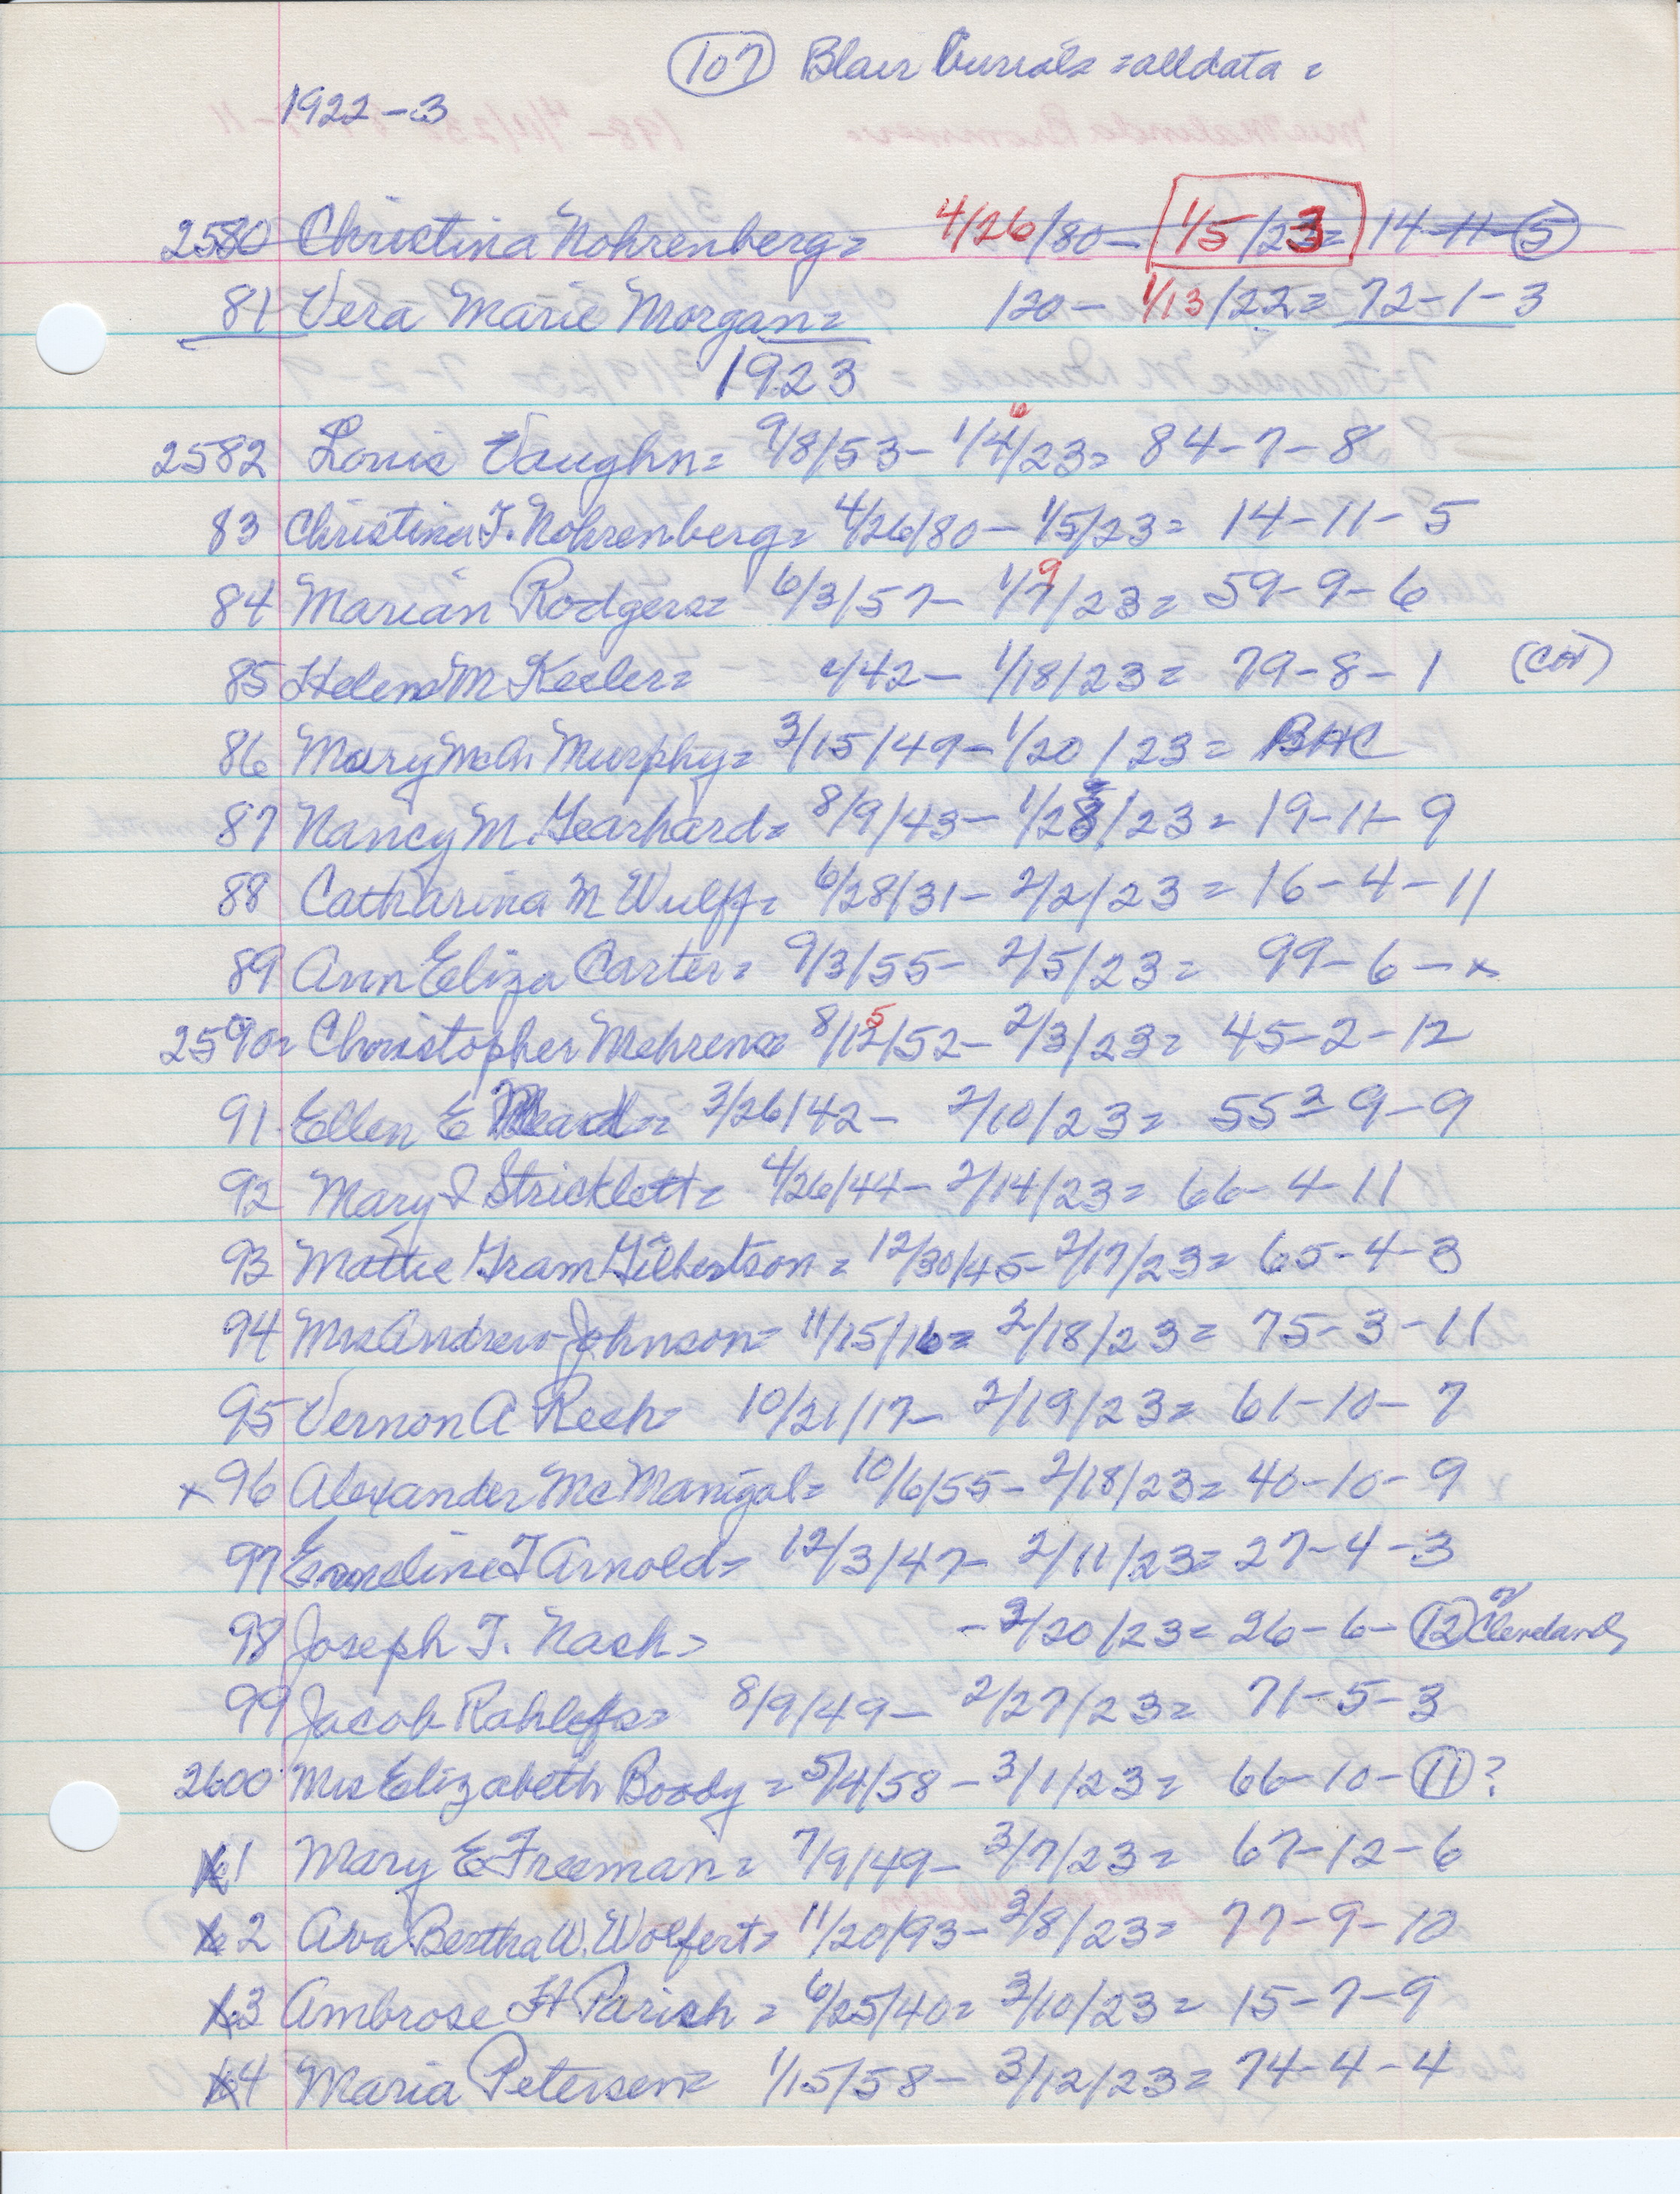 107 Blair burials = alldata =
1922-3
2580 Christina Nohrenberg= 4/26/80- 1/5/23= 14-11-5
81 Vera Marie Morgan= /20- 1/13/22= 72-1-3
1923
2582 Louis Vaughn= 9/8/53- 1/4/23= 84-7-8
83 Christina F. Nohrenberg= 4/26/80- 1/5/23= 14-11-5
84 Marian Rodgers= 6/3/57- 1/7/23= 59-9-6
85 Helena M Kesler= /42- 1/18/23= 79-8-1
86 Mary McA. Murphy= 3/15/49- 1/20/23= BHC
87 Nancy M. Gearhard= 8/9/43- 1/28/23= 19-11-9
88 Catharina M Wulff= 6/28/31- 2/2/23= 16-4-11
89 Ann Eliza Carter= 9/3/55- 2/5/23= 99-6-x
2590= Christopher Mehrens= 8/12/52- 2/3/23= 45-2-12
91 Ellen E 3/26/42- 2/10/23= 55-9-9
92 Mary I Stricklett= 4/26/44- 2/14/23= 66-4-11
93 Mattie Gram Gilbertson= 12/30/45- 2/17/23= 65-4-3
94 Mrs Andrew Johnson= 11/15/16= 2/18/23= 75-3-11
95 Vernon A Rech= 10/21/17- 2/19/23= 61-10-7
x 96 Alexander McManigal= 10/6/55- 2/18/23= 40-10-9
97 Emeline T Arnold= 12/3/47- 2/11/23= 27-4-3
98 Joseph T. Nash= -2/20/23= 26-6-12 of Cleveland
99 Jacob Rahlfs= 8/9/49- 2/27/23= 71-5-3
2600 Mrs Elizabeth Boody= 5/4/58- 3/1/23= 66-10-11?
1 Mary E Freeman= 7/9/49- 3/7/23= 67-12-6
2 Ava Bertha W. Wolfert= 11/20/93- 3/8/23= 77-9-10
3 Ambrose H Parish= 6/25/40= 3/10/23= 15-7-9
4 Maria Petersen= 1/15/58- 3/12/23= 74-4-4